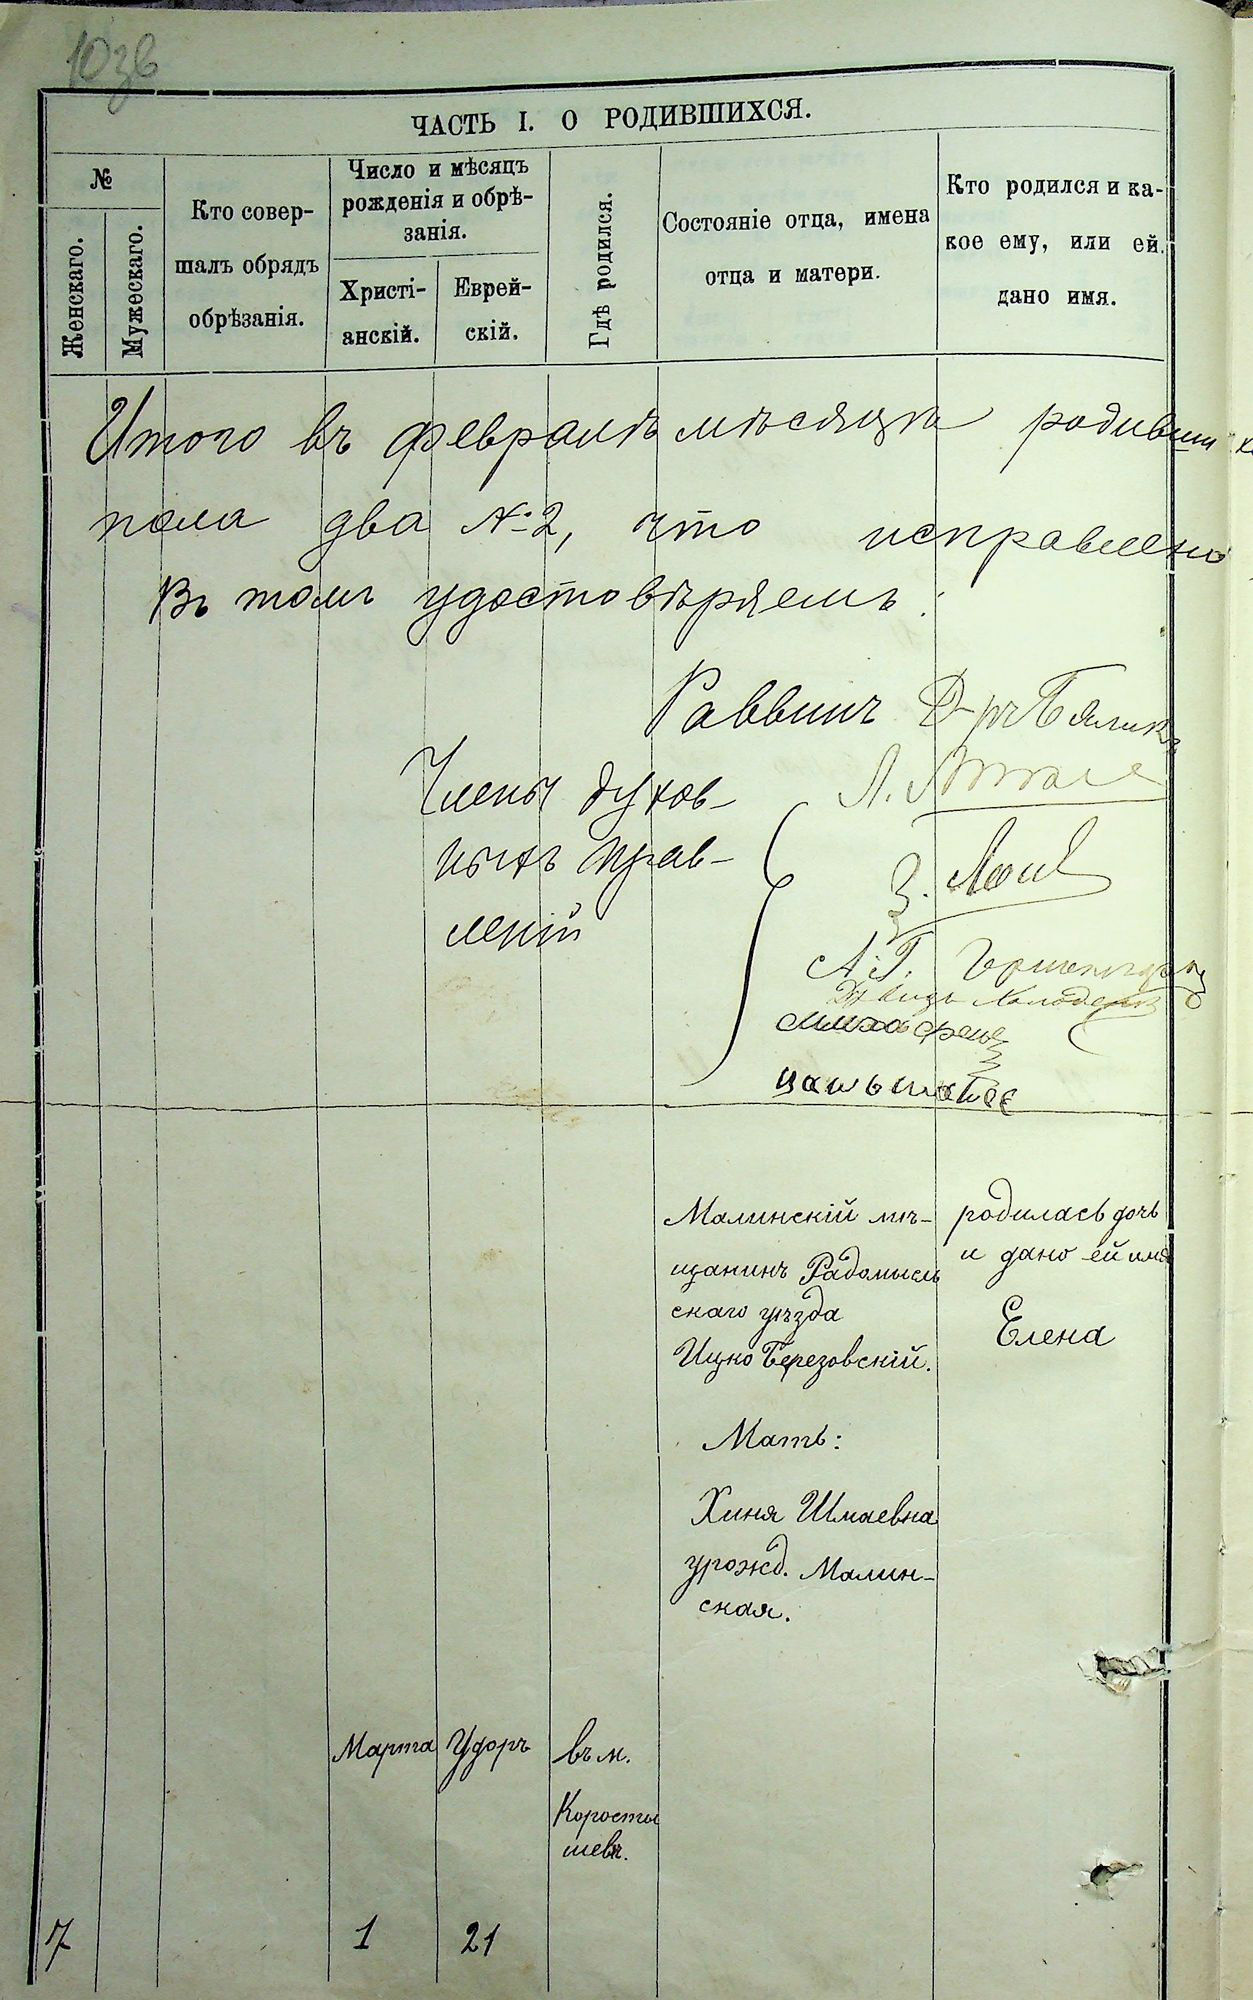 103в
ЧАСТЬ I. О РОДИВШИХСЯ.
№
Женскаго.
Мужескаго.
Кто совер-
шалъ обрядъ
обрѣзанія.
Число и мѣсяцъ
рожденія и обрѣ-
занія.
Христі-
анскій.
Еврей-
скій.
Гдѣ родился.
Состояніе отца, имена
отца и матери.
Кто родился и ка-
кое ему, или ей
дано имя.
Итого въ февралѣ мѣсяцѣ родивших
пола два №2, что исправлено
Въ томъ удостовѣряемъ:
Раввинъ Д-ръ Бяликъ
Члены духов-
ныхъ прав-
леній
Л.
З.
А. Г.
Малинскій мѣ-
щанинъ Радомысль
скаго уѣзда
Ицко Березовскій.
Мать:
Хиня Шмаевна
урожд. Малин-
ская.
родилась дочь
и дано ей имя
Елена
Марта Удоръ въ м.
Коросты
шевѣ.
7 1 21